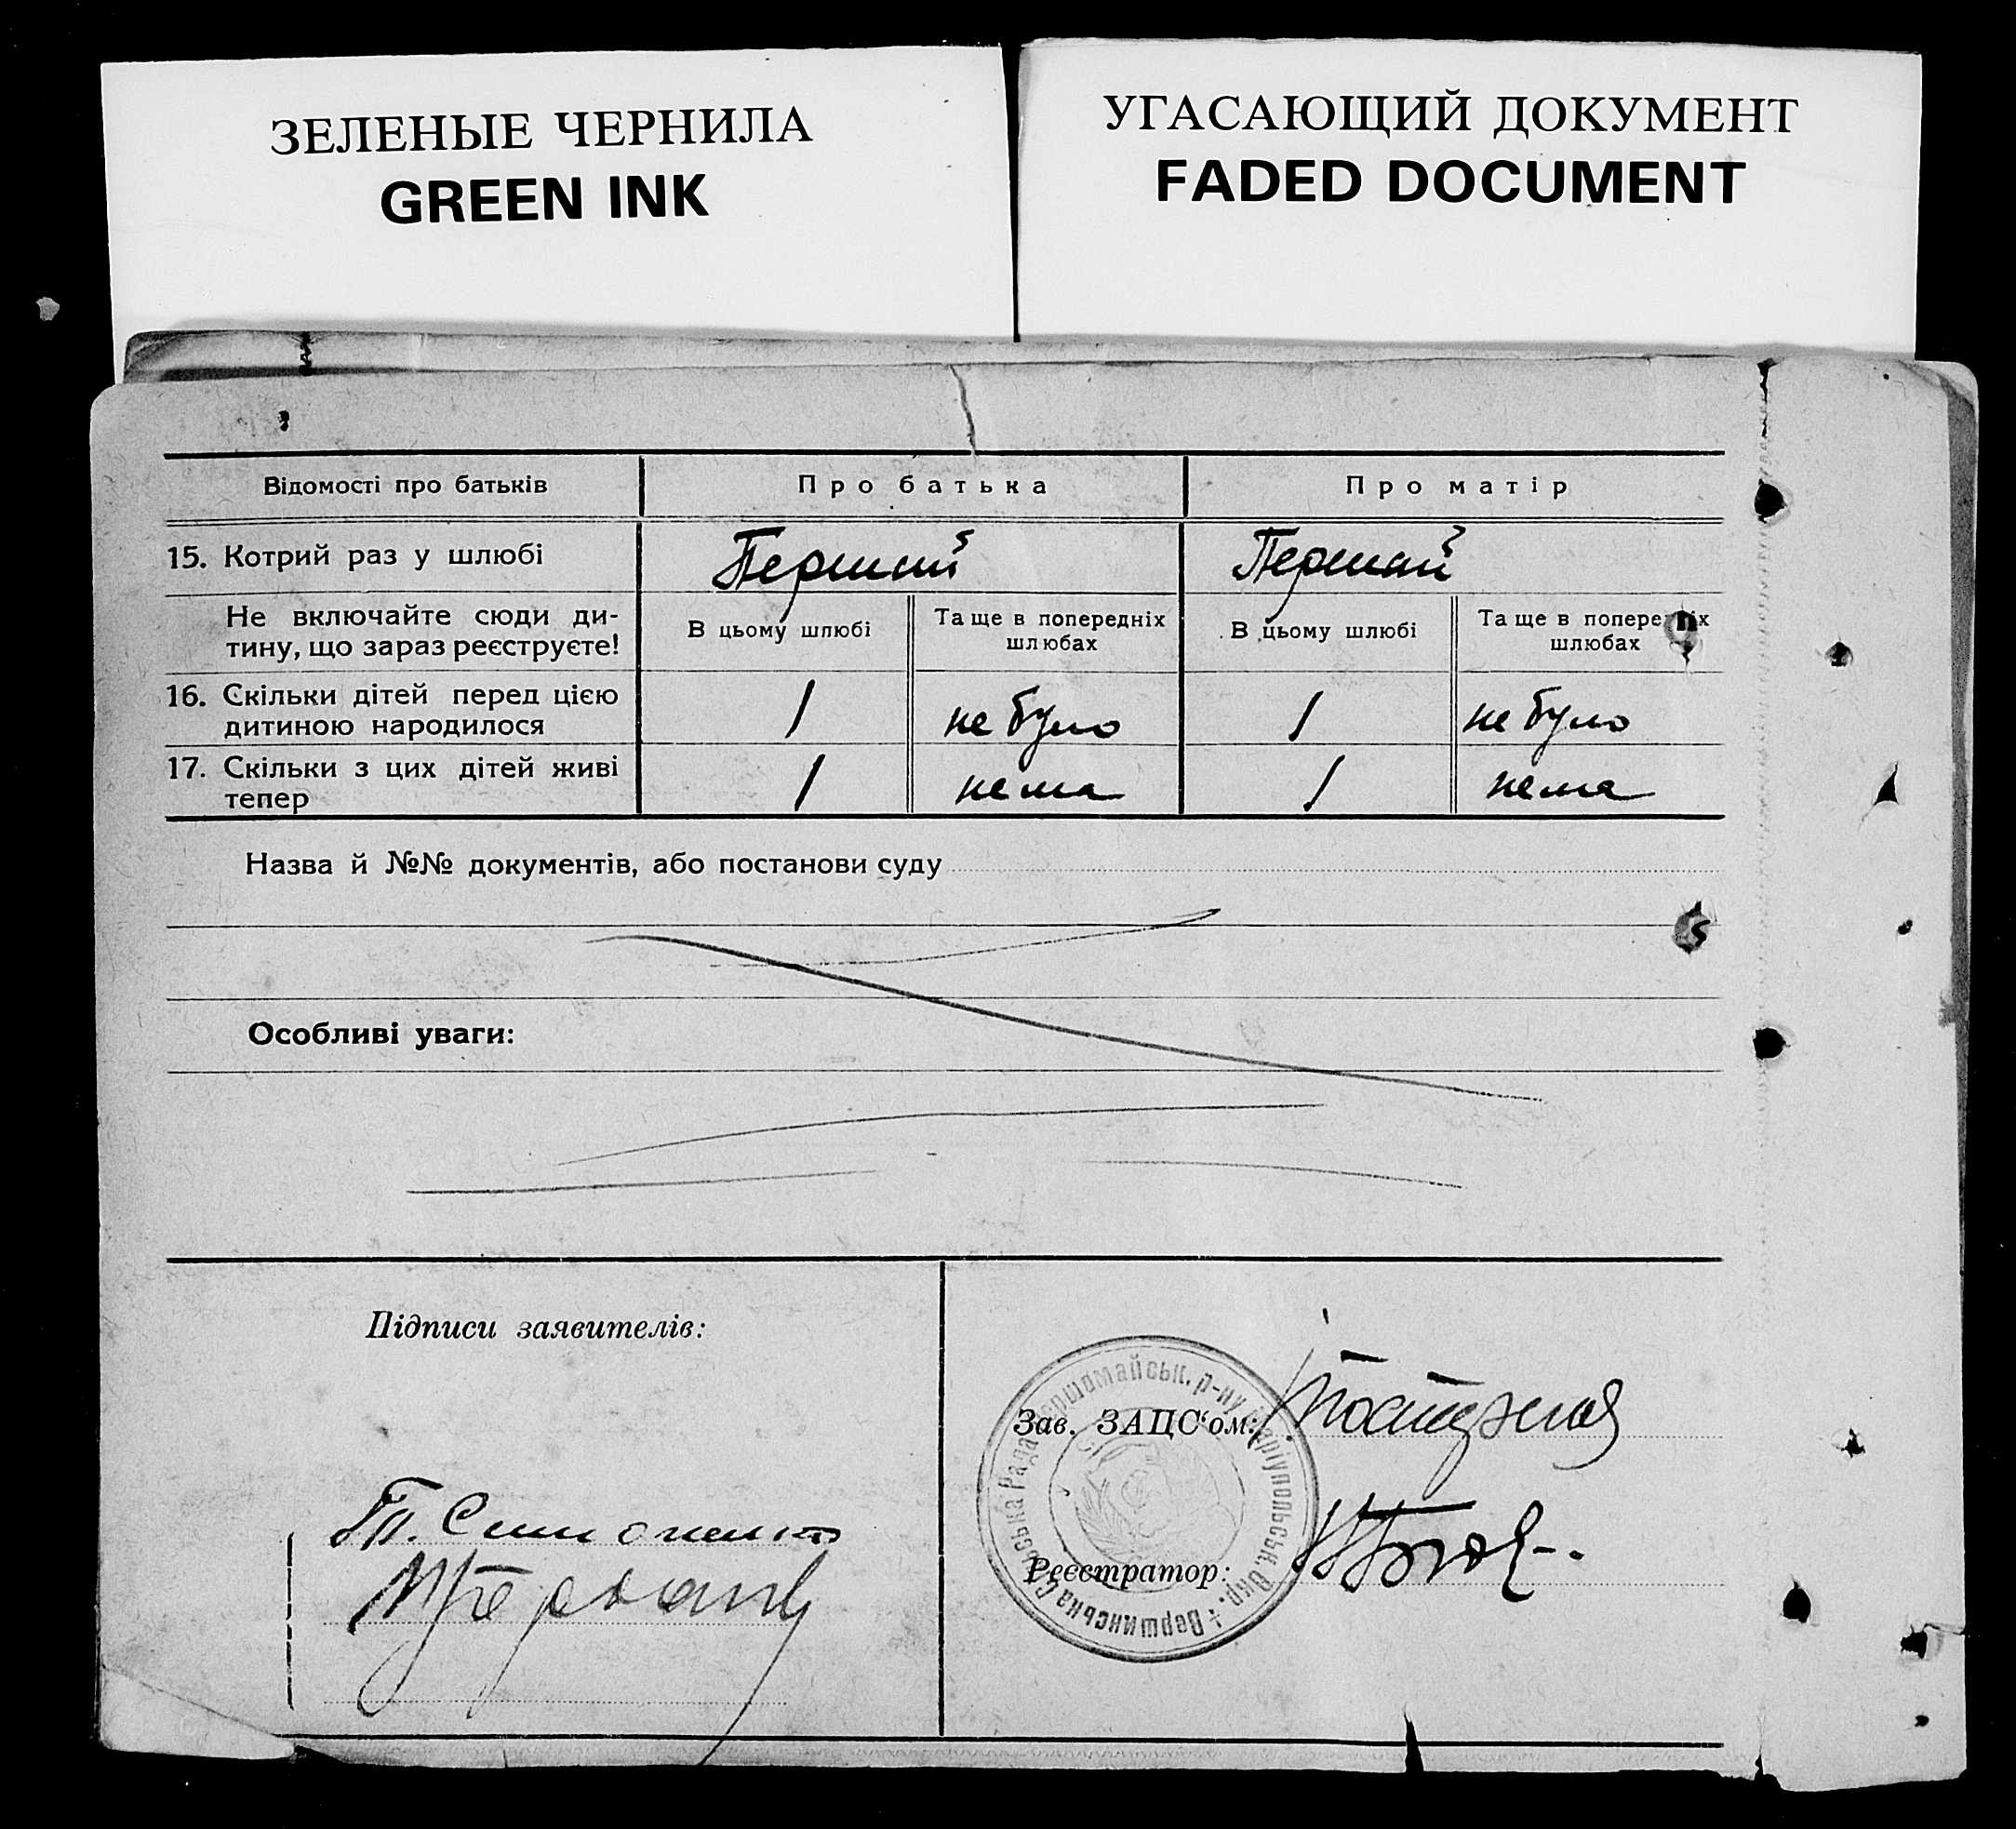 ЗЕЛЕНЫЕ ЧЕРНИЛА
GREEN INK
УГАСАЮЩИЙ ДОКУМЕНТ
FADED DOCUMENT
Відомості про батьків
Про батька
Про матір
15. Котрий раз у шлюбі
Перший
Перший
Не включайте сюди ди-
тину, що зараз реєструєте!
В цьому шлюбі
Та ще в попередніх
шлюбах
В цьому шлюбі
Та ще в попередніх
шлюбах
16. Скільки дітей перед цією
дитиною народилося
1
не було
1
не було
17. Скільки з цих дітей живі
тепер
1
нема
1
нема
Назва й №№ документів, або постанови суду
Особливі уваги:
Підписи заявителів:
Зав. ЗАЦС'ом:
Реєстратор:
Вершинська Сільська Рада Першомайськ. р-ну Маріупольськ. Окр.